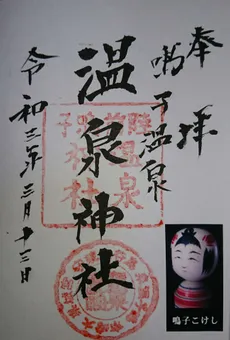 奉拝
鳴子温泉
温泉神社
令和三年三月十三日
鳴子こけし